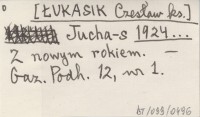 [ŁUKASIK Czesław ks.]
Jucha-s 1924...
Z nowym rokiem. —
Gaz. Podh. 12, nr 1.